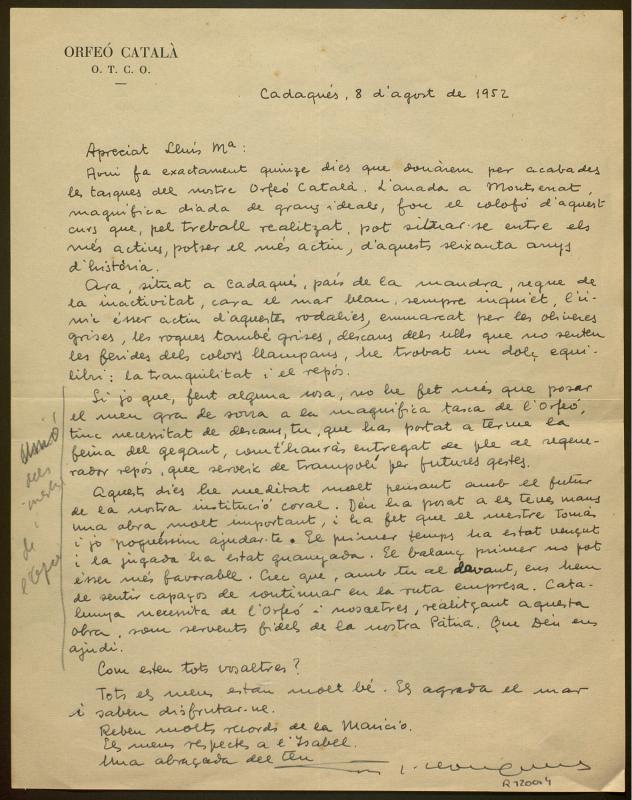 ORFEÓ CATALÀ
O. T. C. O.
Cadaqués, 8 d'agost de 1952
Apreciat Lluís Mª:
Avui fa exactament quinze dies que donàrem per acabades
les tasques del nostre Orfeó Català. L'anada a Montserrat,
magnífica diada de grans ideals, fou el colofó d'aquest
curs que, pel treball realitzat, pot situar-se entre els
més actius, potser el més actiu, d'aquests seixanta anys
d'història.
Ara, situat a Cadaqués, país de la mandra, regne de
la inactivitat, cara el mar blau, sempre inquiet, l'ú-
nic ésser actiu d'aquestes rodalies, emmarcat per les oliveres
grises, les roques també grises, descans dels ulls que no senten
les ferides dels colors llampants, he trobat un dolç equi-
libri: la tranquilitat i el repòs.
Si jo que, fent alguna cosa, no he fet més que posar
el meu gra de sorra a la magnífica tasca de l'Orfeó,
tinc necessitat de descans, tu, que has portat a terme la
feina del gegant, com t'hauràs entregat de ple al regene-
rador repòs, que serveix de trampolí per futures gestes.
Aquests dies he meditat molt pensant amb el futur
de la nostra institució coral. Déu ha posat a les teves mans
una obra molt important, i ha fet que el mestre Tomàs
i jo poguessim ajudar-te. El primer temps ha estat vençut
i la jugada ha estat guanyada. El balanç primer no pot
ésser més favorable. Crec que, amb tu al davant, ens hem
de sentir capaços de continuar en la ruta empresa. Cata-
lunya necessita de l'Orfeó i nosaltres, realitzant aquesta
obra, som servents fidels de la nostra Pàtria. Que Déu ens
ajudi.
Com esteu tots vosaltres?
Tots els meus estan molt bé. Els agrada el mar
i saben disfrutar-ne.
Rebeu molts records de la Maricio.
Els meus respectes a l'Isabel.
Una abraçada del teu
dels
i
de
R 120014